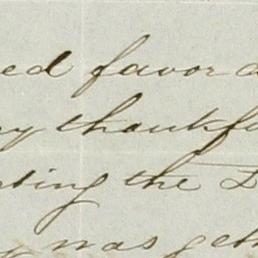 ed favor a
y thankfu
ting the D
y was gett